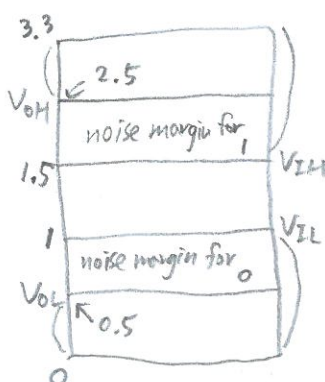 3.3
2.5
VOH
noise margin for 1
1.5
VIH
1
VIL
noise margin for 0
VOL
0.5
0